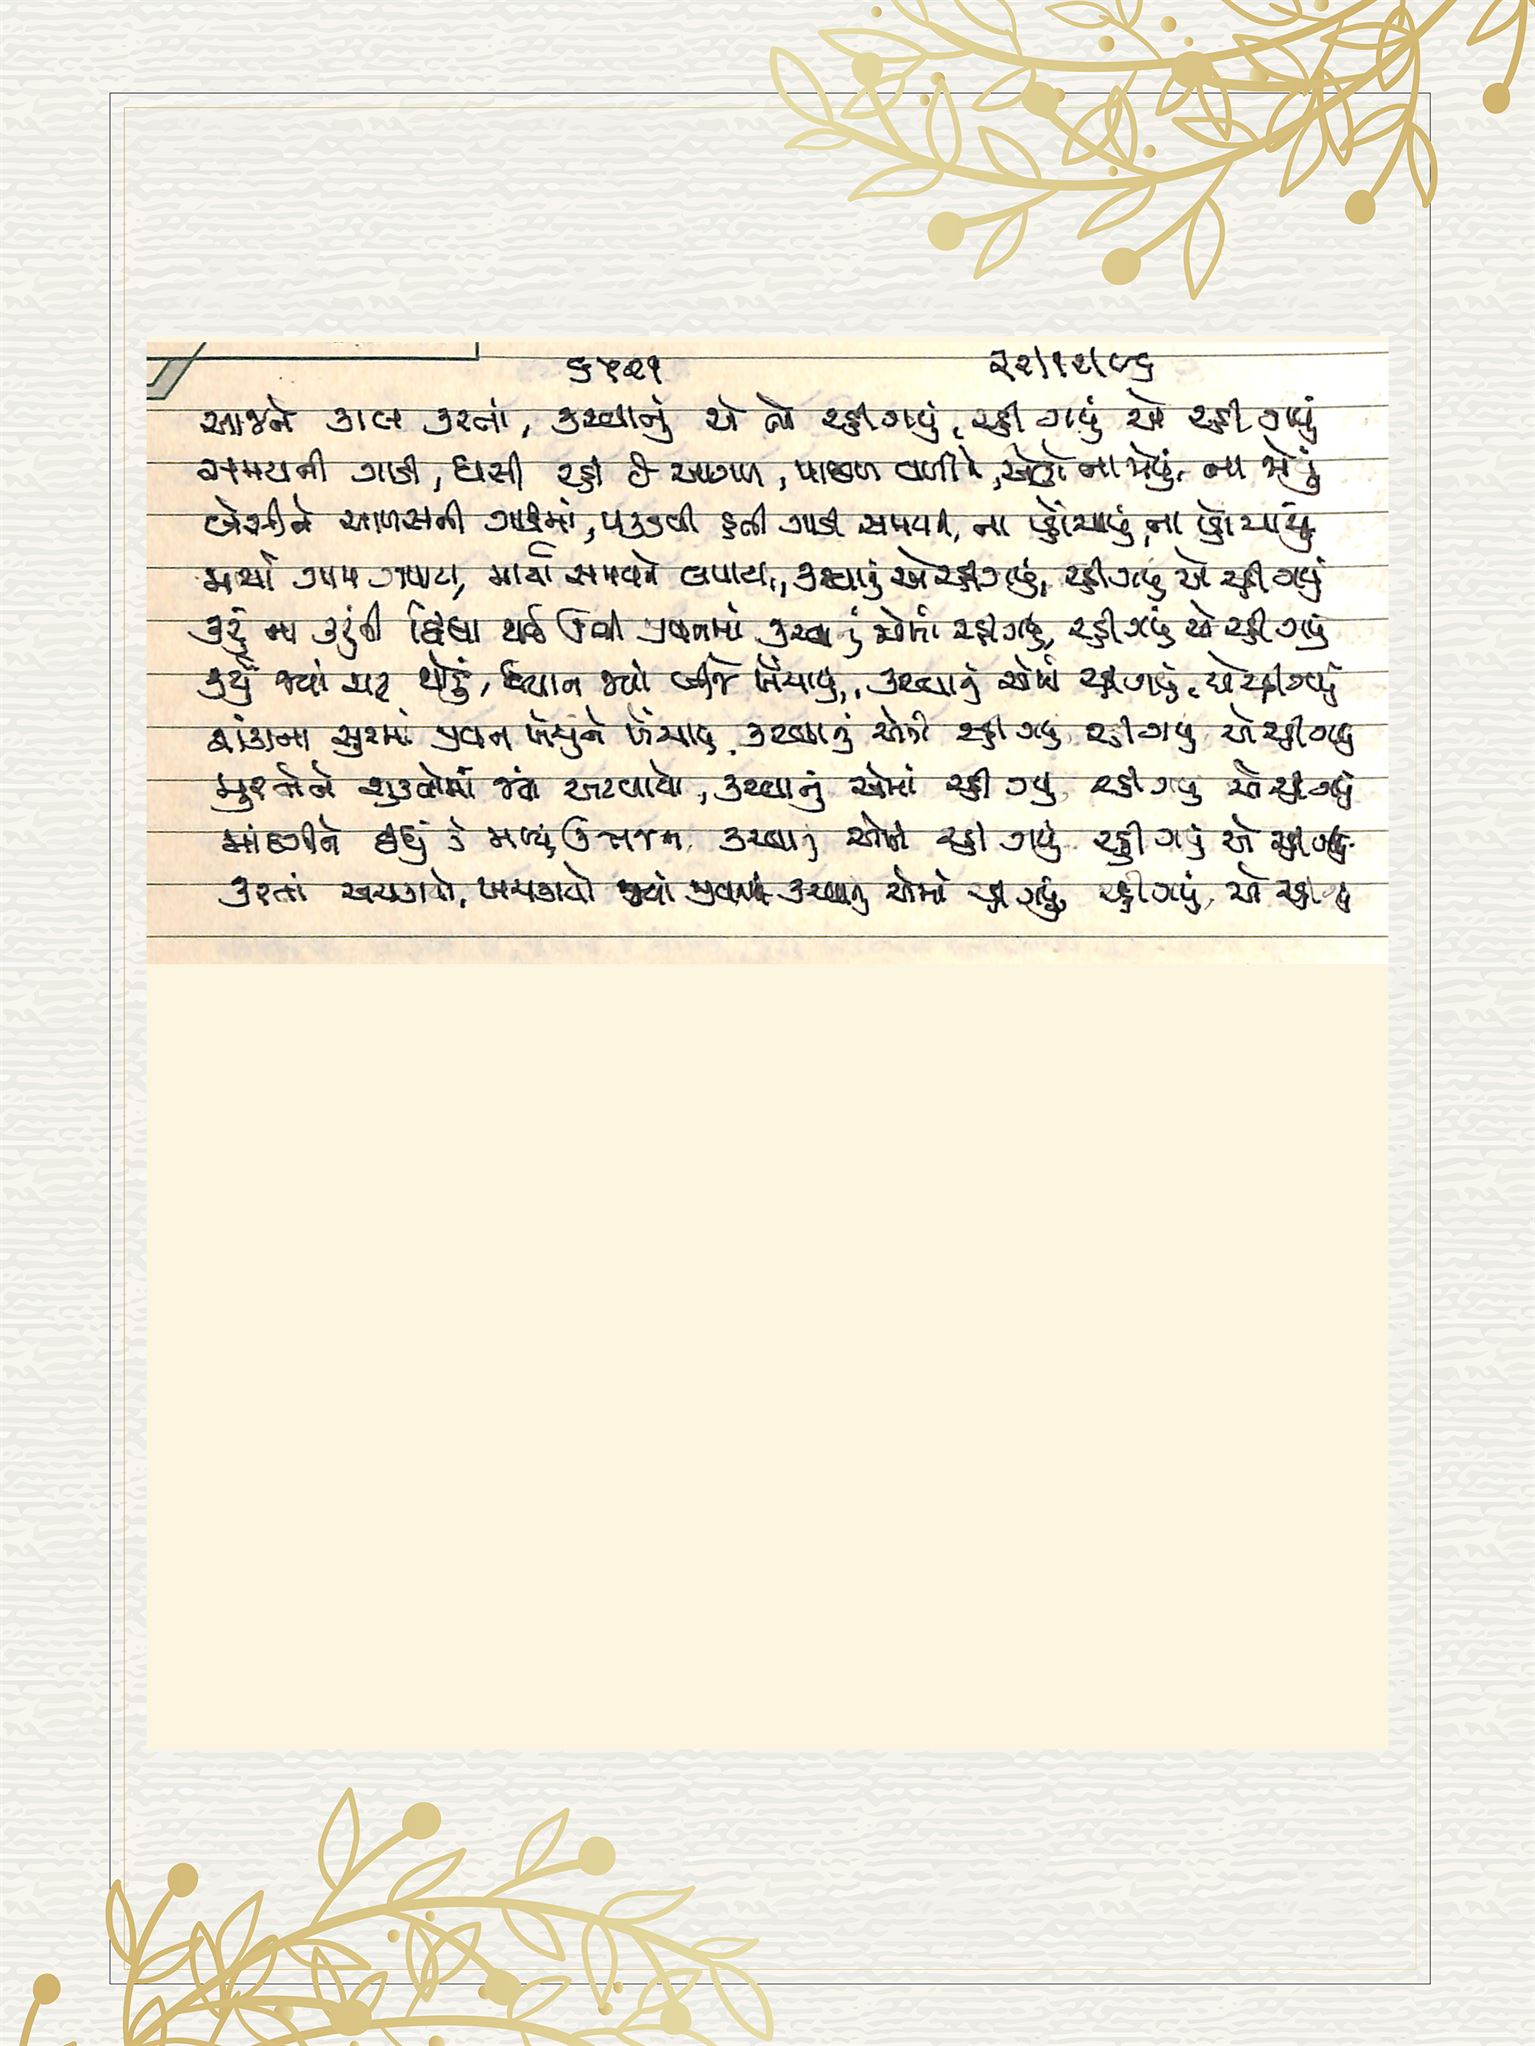 ૬૫૨૧ ૨૨/૧૨/૯૬
આજને કાલ કરતાં, કરવાનું એ તો રહી ગયું, રહી ગયું એ રહી ગયું
સમયની ગાડી, ધસી રહી છે આગળ, પાછળ વળીને, એણે ના જોયું, ના જોયું
બેસીને આળસની ગાડીમાં, પકડવી હતી ગાડી સમયની, ના પહોંચાયું, ના પહોંચાયું
માર્યા ગામ ગપાટા, માર્યા સમયને લપાટા, કરવાનું એ રહી ગયું, રહી ગયું એ રહી ગયું
કરું ના કરુંની દ્વિધા થઈ ઊભી જીવનમાં કરવાનું એમાં રહી ગયું, રહી ગયું એ રહી ગયું
કર્યું જ્યાં જરા થોડું, ધ્યાન જ્યાં બીજે ખેંચાયું, કરવાનું એમાં રહી ગયું, એ રહી ગયું
શંકાના સુરમાં જીવન ખેંચ્યું ને ખેંચાયું, કરવાનું એમાં રહી ગયું રહી ગયું એ રહી ગયું
મુરતોને શુકનોમાં જ્યાં અટવાયો, કરવાનું એમાં રહી ગયું રહી ગયું એ રહી ગયું
માંડીને કહ્યું કે મળ્યું ઉત્તેજન કરવાનું એમાં રહી ગયું રહી ગયું એ રહી ગયું
કરતાં અચકાયો, ખચકાયો જ્યાં જીવનમાં કરવાનું એમાં રહી ગયું, રહી ગયું, એ રહી ગયું